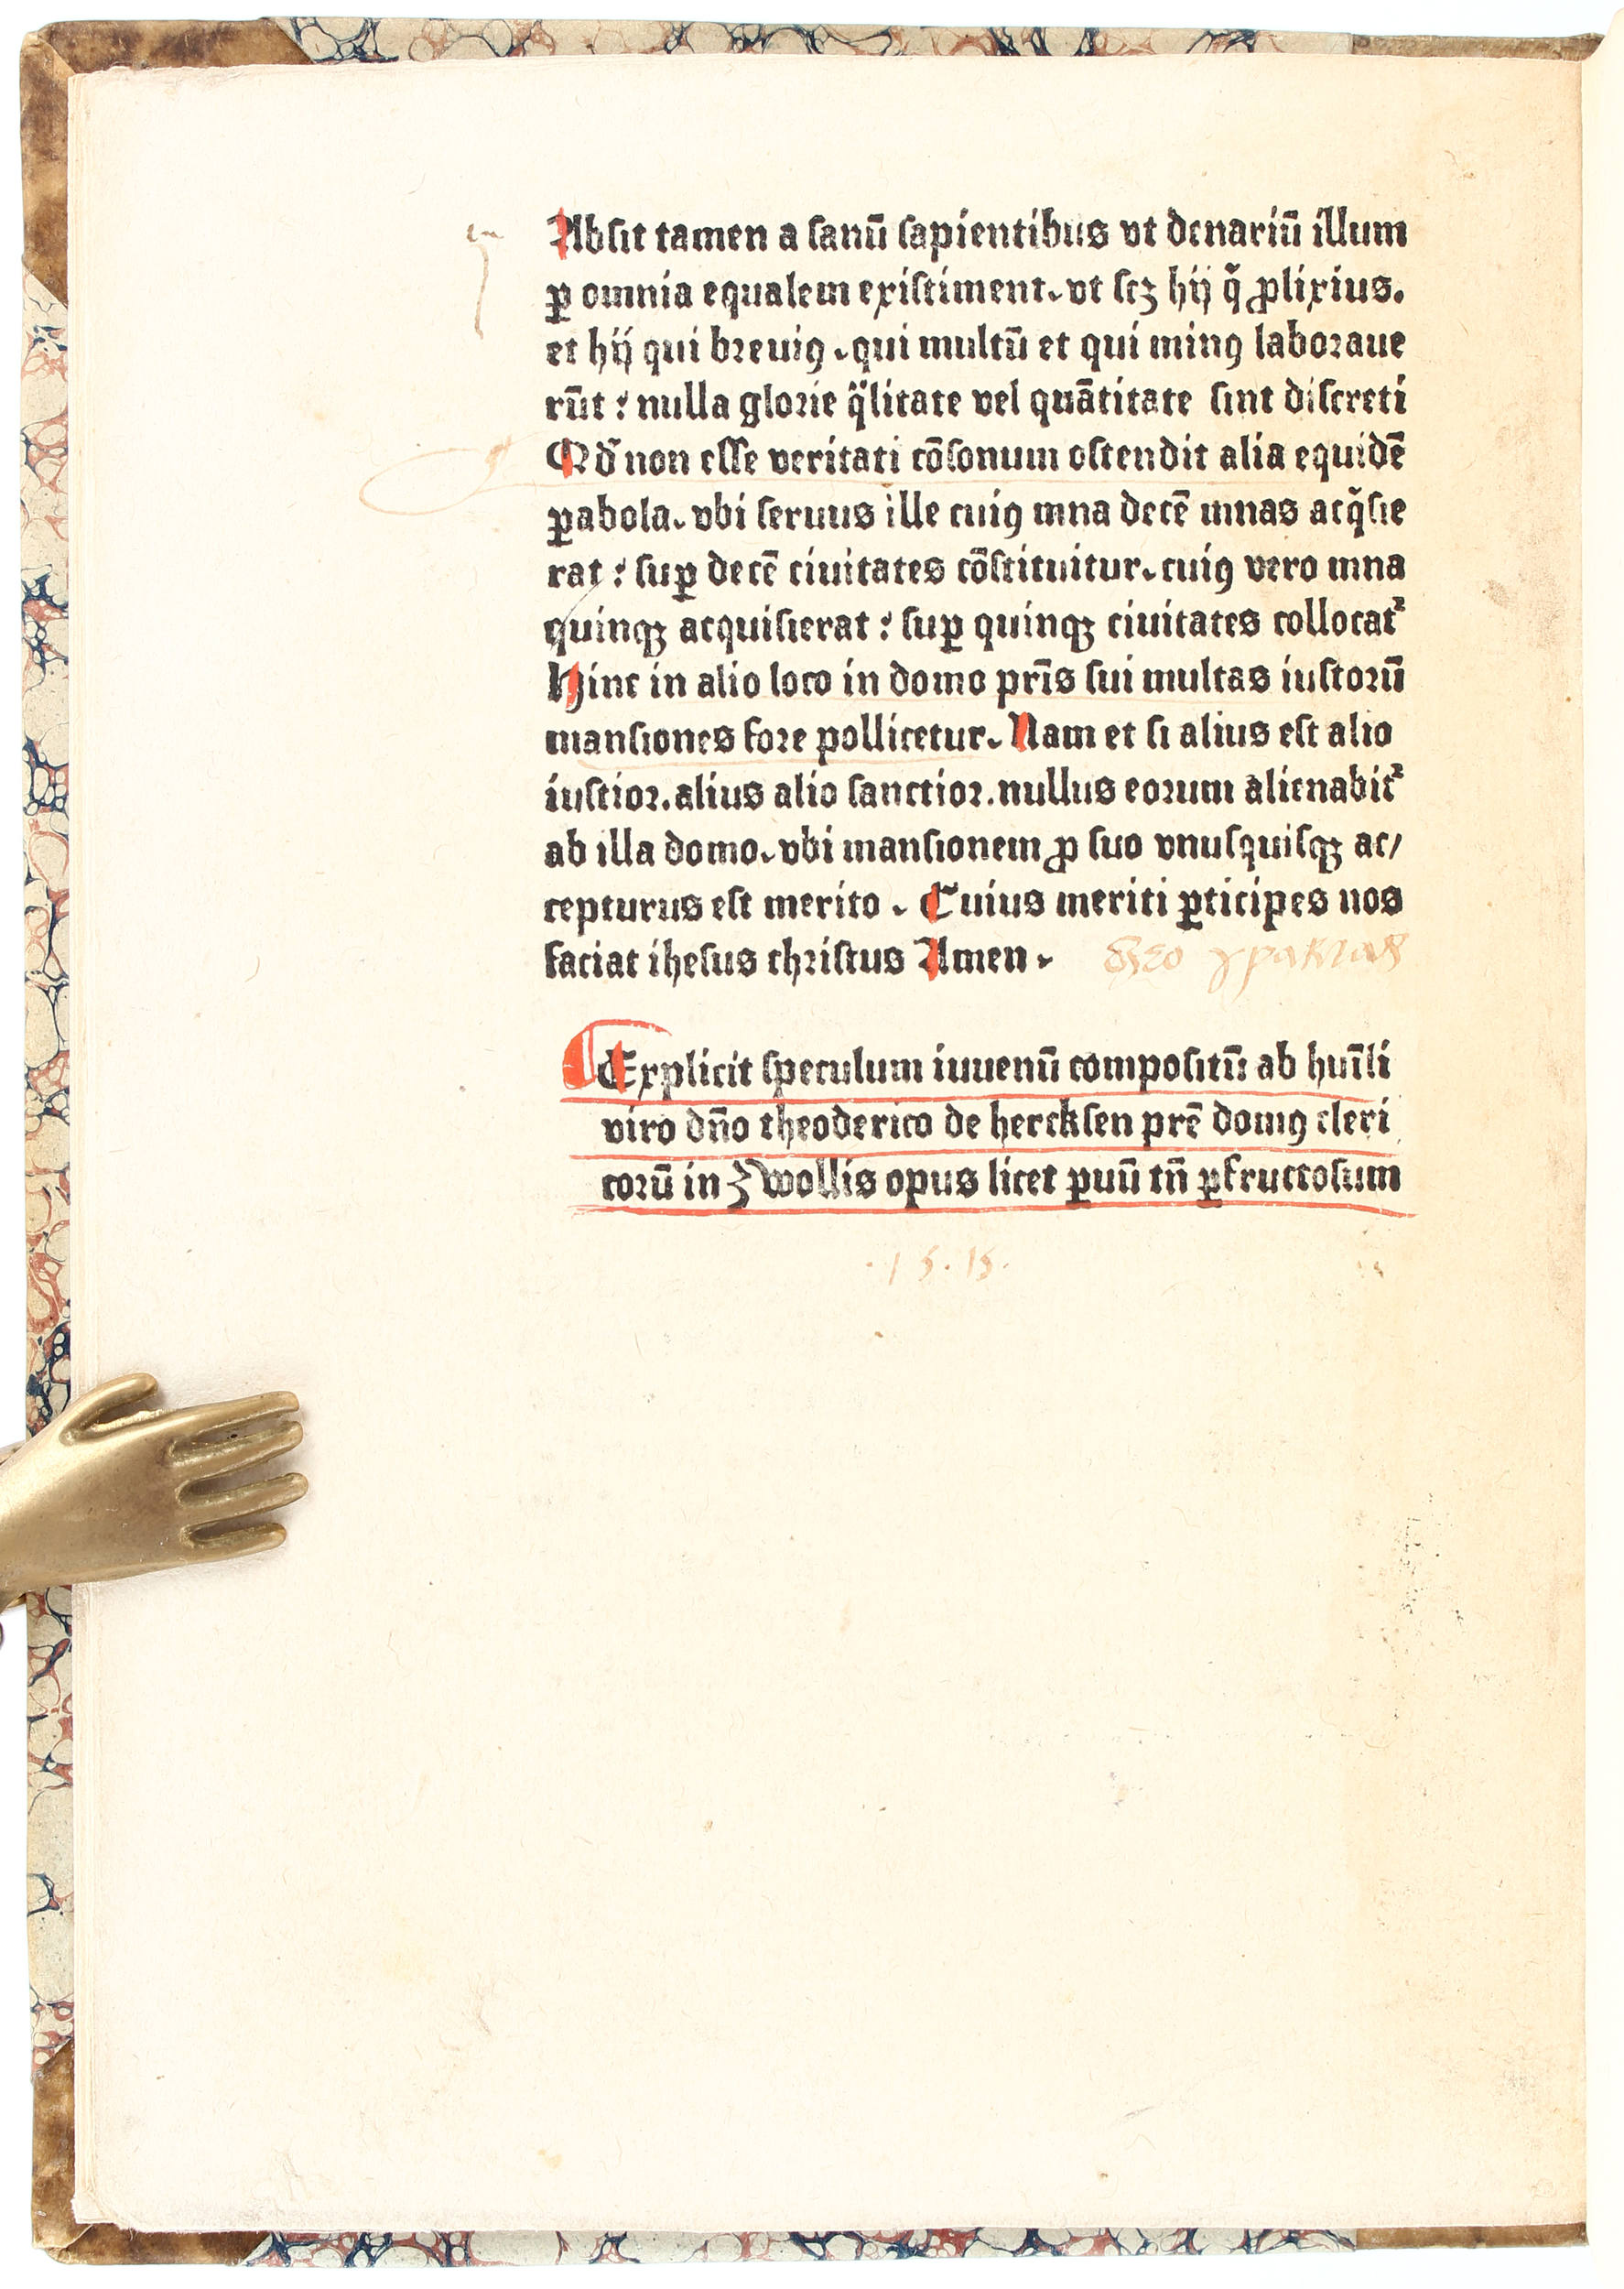 Absit tamen a sanū sapientibus vt denariū illum
ꝑ omnia equalem existiment. vt scꝫ hij q̄ ꝓlixius.
et hij qui breuiꝰ. qui multū et qui minꝰ laboraue
rūt : nulla glorie q̈litate vel quātitate sint discreti
Qd̄ non esse veritati cōsonum ostendit alia equidē
ꝑabola. vbi seruus ille cuiꝰ mna decē mnas acq̄sie
rat : suꝑ decē ciuitates cōstituitur. cuiꝰ vero mna
quinqꝫ acquisierat : suꝑ quinqꝫ ciuitates collocat᷑
Hinc in alio loco in domo pr̄is sui multas iustorū
mansiones fore pollicetur. Nam et si alius est alio
iustior. alius alio sanctior. nullus eorum alienabit᷑
ab illa domo. vbi mansionem ꝓ suo vnusquisqꝫ ac/
cepturus est merito. Cuius meriti ꝑticipes nos
faciat ihesus christus Amen. δεο γρακιας
Explicit speculum iuuenū compositū ab huīli
viro dn̄o theoderico de hercksen prē domꝰ cleri
corū in Zwollis opus licet ꝑuū tn̄ ꝑfructosum
. 1 5 . 15 .